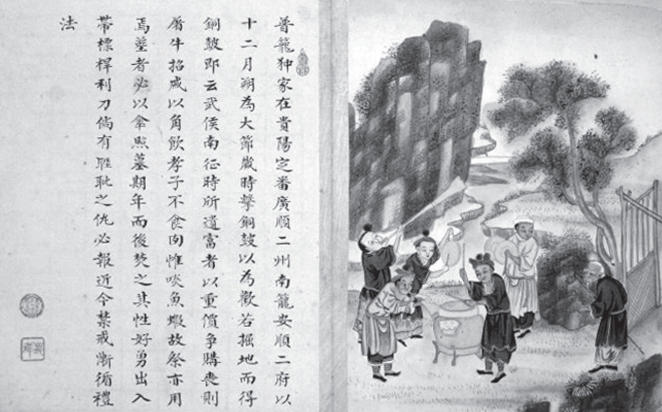 普籠狆家在貴陽定番廣順二州南籠安順二府以
十二月朔為大節歲時擊銅鼓以為歡若掘地而得
銅鼓即云武侯南征時所遺富者以重價爭購喪則
屠牛招戚以角飲孝子不食肉惟啖魚蝦故祭亦用
焉塟者必以傘照墓期年而後焚之其性好勇出入
帶標桿利刀倘有睚眦之仇必報近令禁戒漸循禮
法